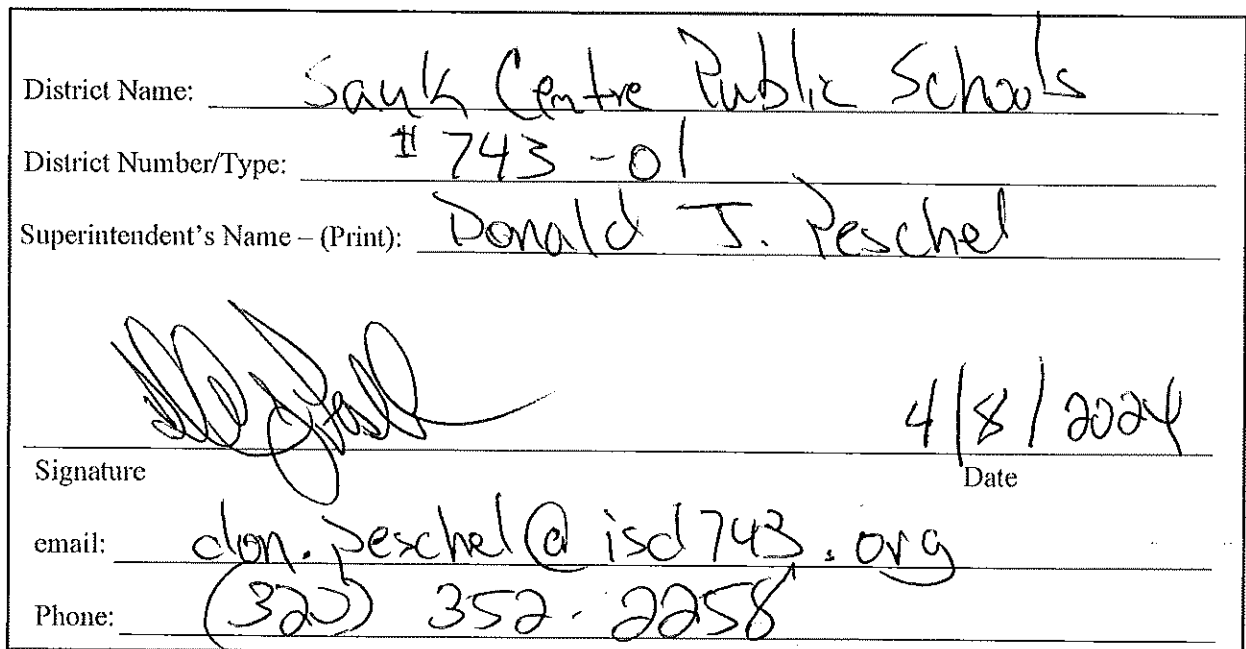 District Name: Sauk Centre Public Schools
District Number/Type: # 743 - 01
Superintendent's Name – (Print): Donald J. Peschel
4/8/2024
Signature Date
email: don.peschel@isd743.org
Phone: (320) 352-2258